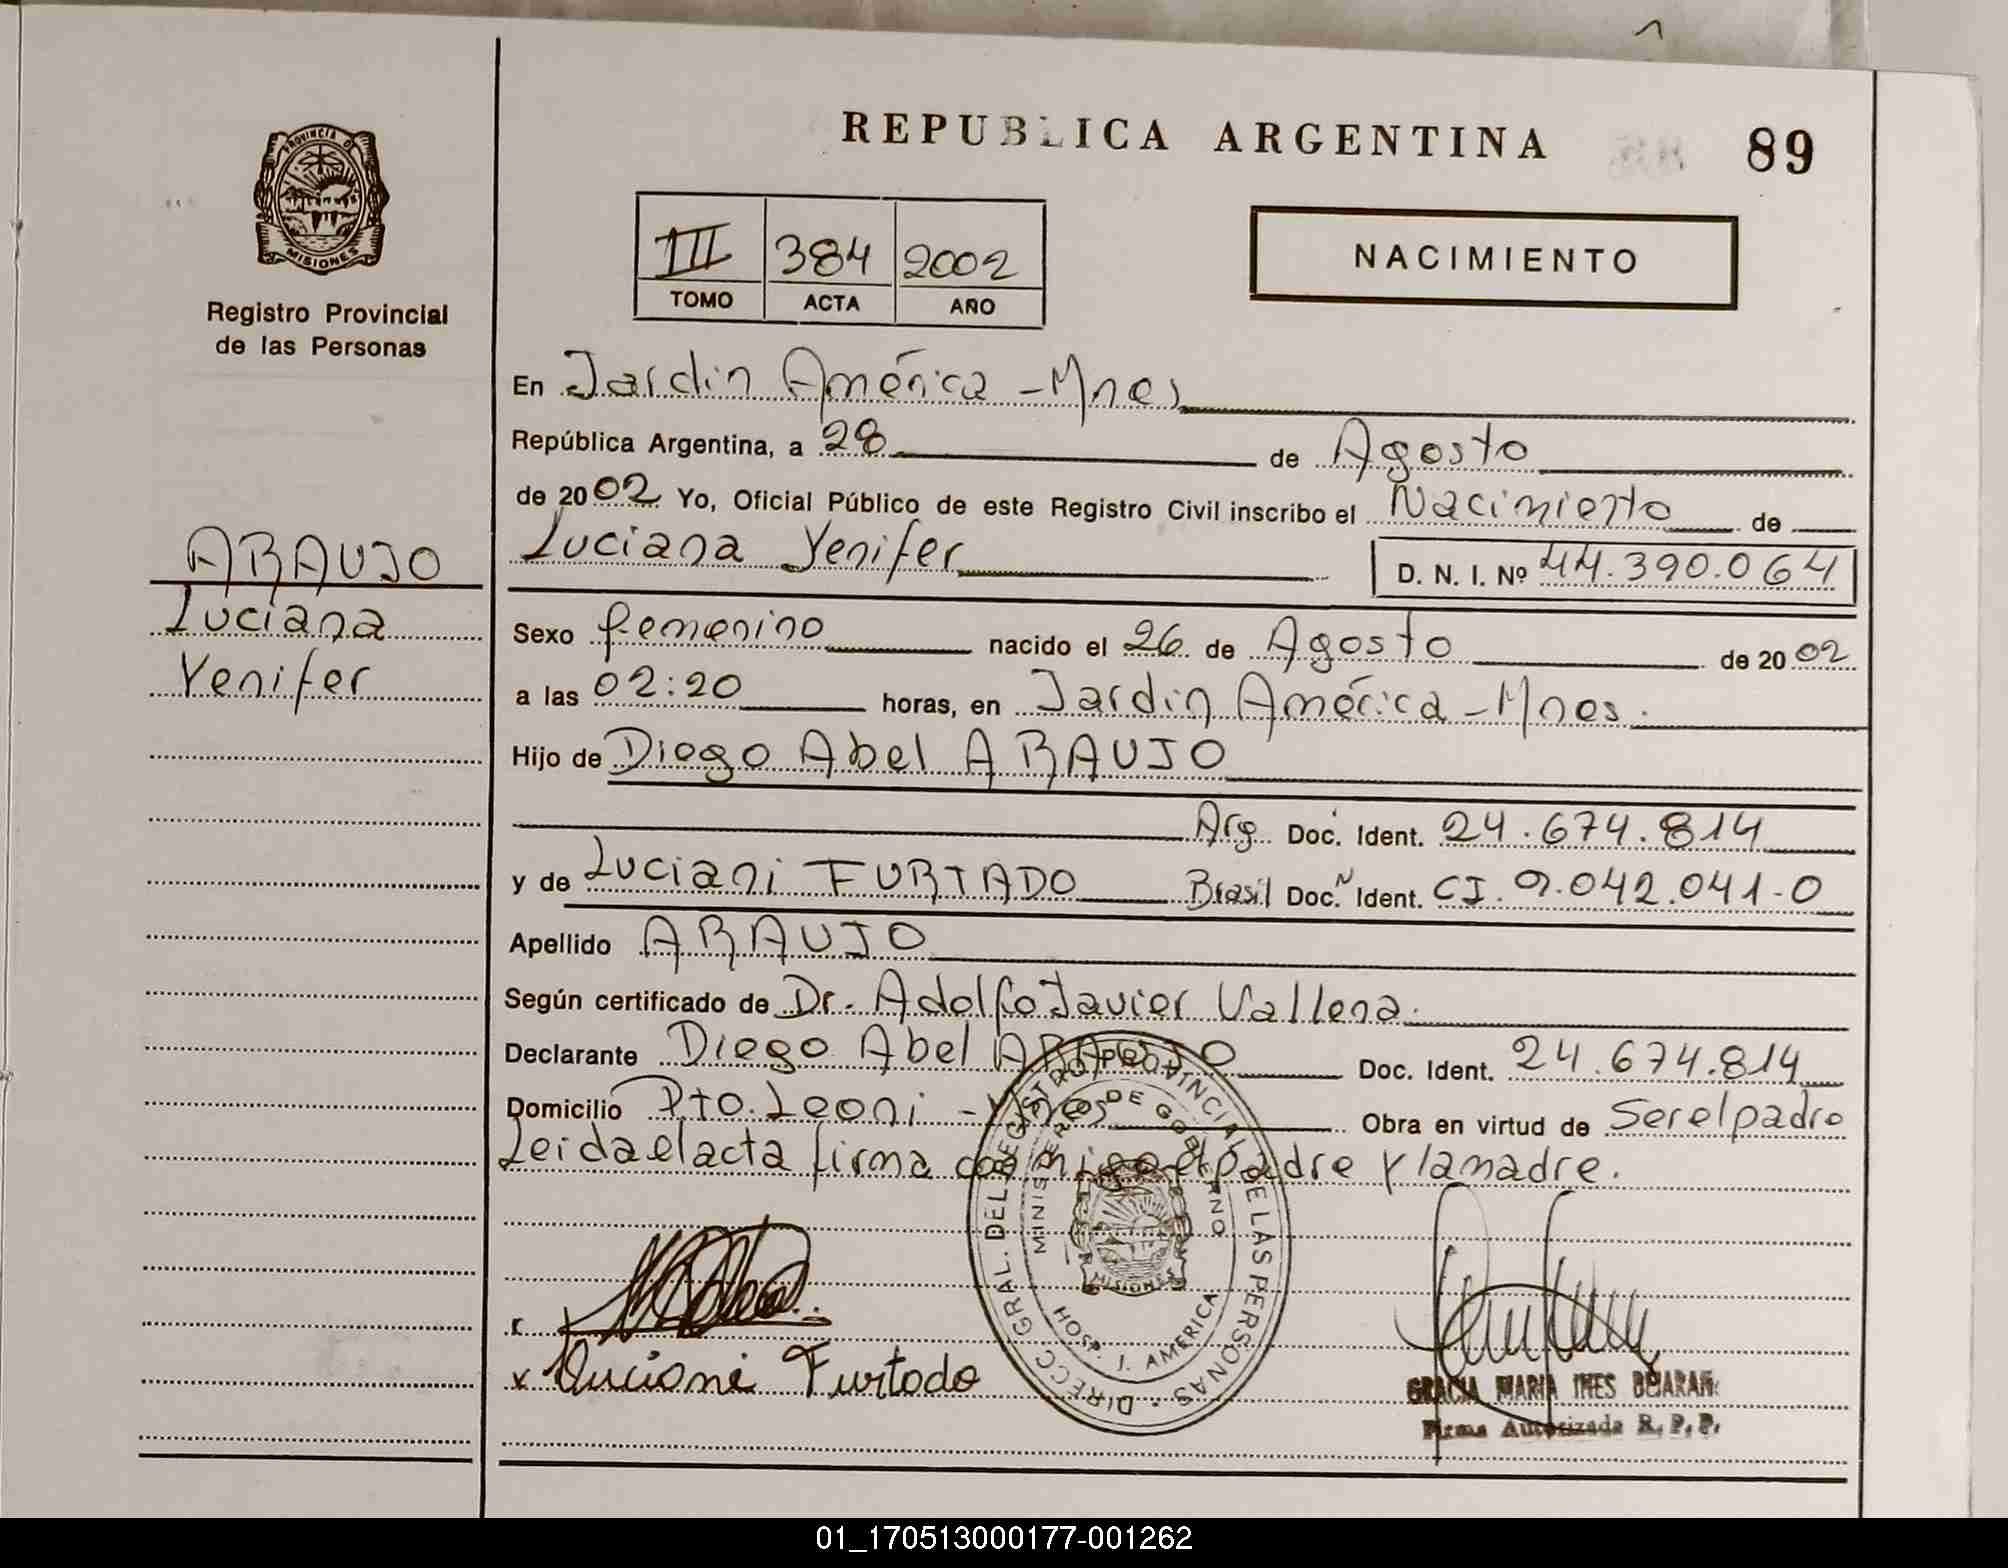 REPUBLICA ARGENTINA
89
PROVINCIA D
MISIONES
Registro Provincial
de las Personas
III 384 2002
TOMO ACTA AÑO
NACIMIENTO
En Jardin América - Mnes
República Argentina, a 28 de Agosto
de 2002 Yo, Oficial Público de este Registro Civil inscribo el Nacimiento de
Luciana Yenifer D. N. I. Nº 44.390.064
ARAUJO
Luciana
Yenifer
Sexo femenino nacido el 26 de Agosto de 2002
a las 02:20 horas, en Jardin América - Mnes.
Hijo de Diego Abel ARAUJO
Arg. Doc. Ident. 24.674.814
y de Luciani FURTADO Brasil Doc. Ident. CI. 9.042.041-0
Apellido ARAUJO
Según certificado de Dr. Adolfo Javier Vallena.
Declarante Diego Abel ARAUJO Doc. Ident. 24.674.814
Domicilio Pto. Leoni - Mnes Obra en virtud de Ser el padre
Leida el acta firma conmigo el padre y la madre.
DIRECC. GRAL. DEL REGISTRO PROVINCIAL DE LAS PERSONAS
MINISTERIO DE GOBIERNO
MISIONES
HOSP. J. AMERICA
x Luciani Furtado
GRACIA MARIA INES BEJARAN
Firma Autorizada R. P. P.
01_170513000177-001262